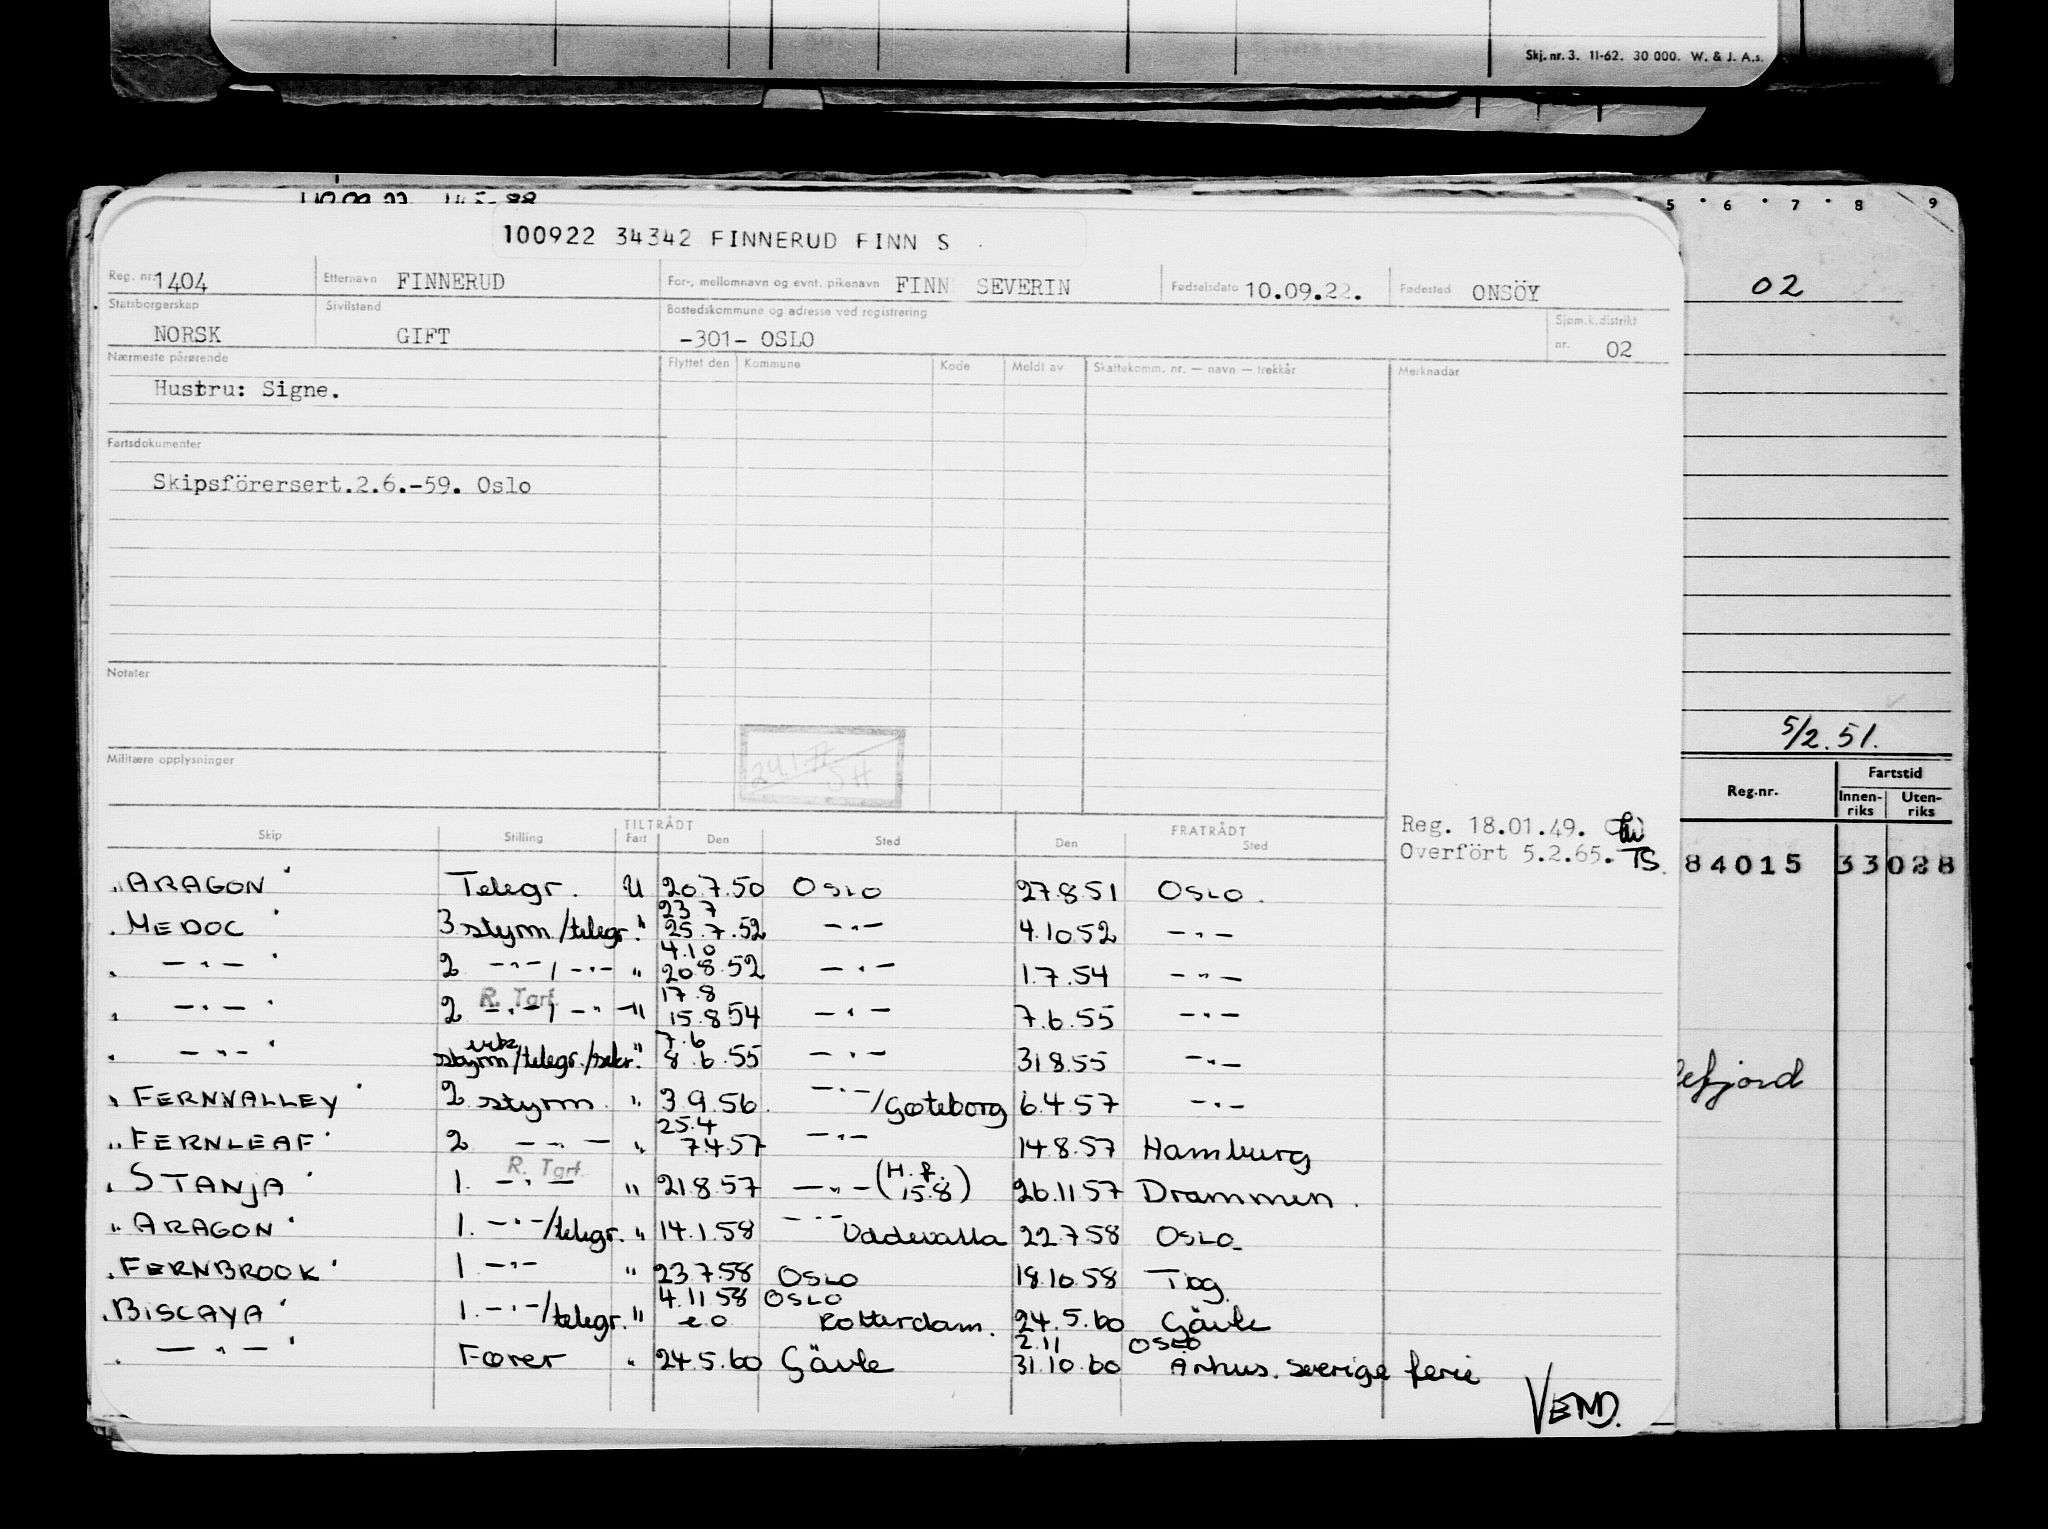 Skj. nr. 3. 11-62. 30 000. W. & J. A.s.
5 6 7 8 9
100922 34342 FINNERUD FINN S
Reg. nr. 1404 Etternavn FINNERUD For-, mellomnavn og evnt. pikenavn FINN SEVERIN Fødselsdato 10.09.22. Fødested ONSÖY
02
Statsborgerskap Sivilstand Bostedskommune og adresse ved registrering Sjøm.k.distrikt
NORSK GIFT -301- OSLO nr. 02
Nærmeste pårørende Flyttet den Kommune Kode Meldt av Skattekomm. nr. — navn — trekkår Merknader
Hustru: Signe.
Fartsdokumenter
Skipsförersert.2.6.-59. Oslo
Notater
5/2.51.
Militære opplysninger
Reg.nr. Fartstid
Innen-riks Uten-riks
Reg. 18.01.49.
Overfört 5.2.65. TS.
84015 33 028
TILTRÅDT FRATRÅDT
Skip Stilling Fart Den Sted Den Sted
"ARAGON" Telegr. U 20.7.50 OSLO 27.8.51 OSLO.
23 7
"MEDOC" 3 styrm/telegr. " 25.7.52 —"— 4.10 52 —"—
4.10
" —"— " 2 —"— / —"— " 20 8.52 —"— 1.7.54 —"—
R. Tart. 17.8
" —"— " 2 —"— / —"— " 15.8 54 —"— 7.6.55 —"—
7.6
" —"— " styrm/telegr./sekr. " 8.6.55 —"— 31 8.55 —"—
"FERNVALLEY" 2. styrm. " 3 9.56. —"—/Gøteborg 6.4 57 —"—
25.4
"FERNLEAF" 2 —"— " 7.4.57 —"— 14 8.57 Hamburg
R. Tart.
"STANJA" 1. —"— " 21 8.57 —"— (H.f. 15.8) 26.11 57 Drammen.
"ARAGON" 1. —"—/telegr. " 14.1.58 —"— Uddevalla 22.7 58 OSLO
"FERNBROOK" 1 —"— " 23 7.58 OSLO 18.10.58 Tbg.
4.11 58 OSLO
"BISCAYA" 1. —"—/telegr. " e.o Rotterdam. 24.5.60 Gävle
2.11 OSLO
" —"— " Fører " 24.5.60 Gävle 31.10.60 Århus. Sverige ferie
VEND.